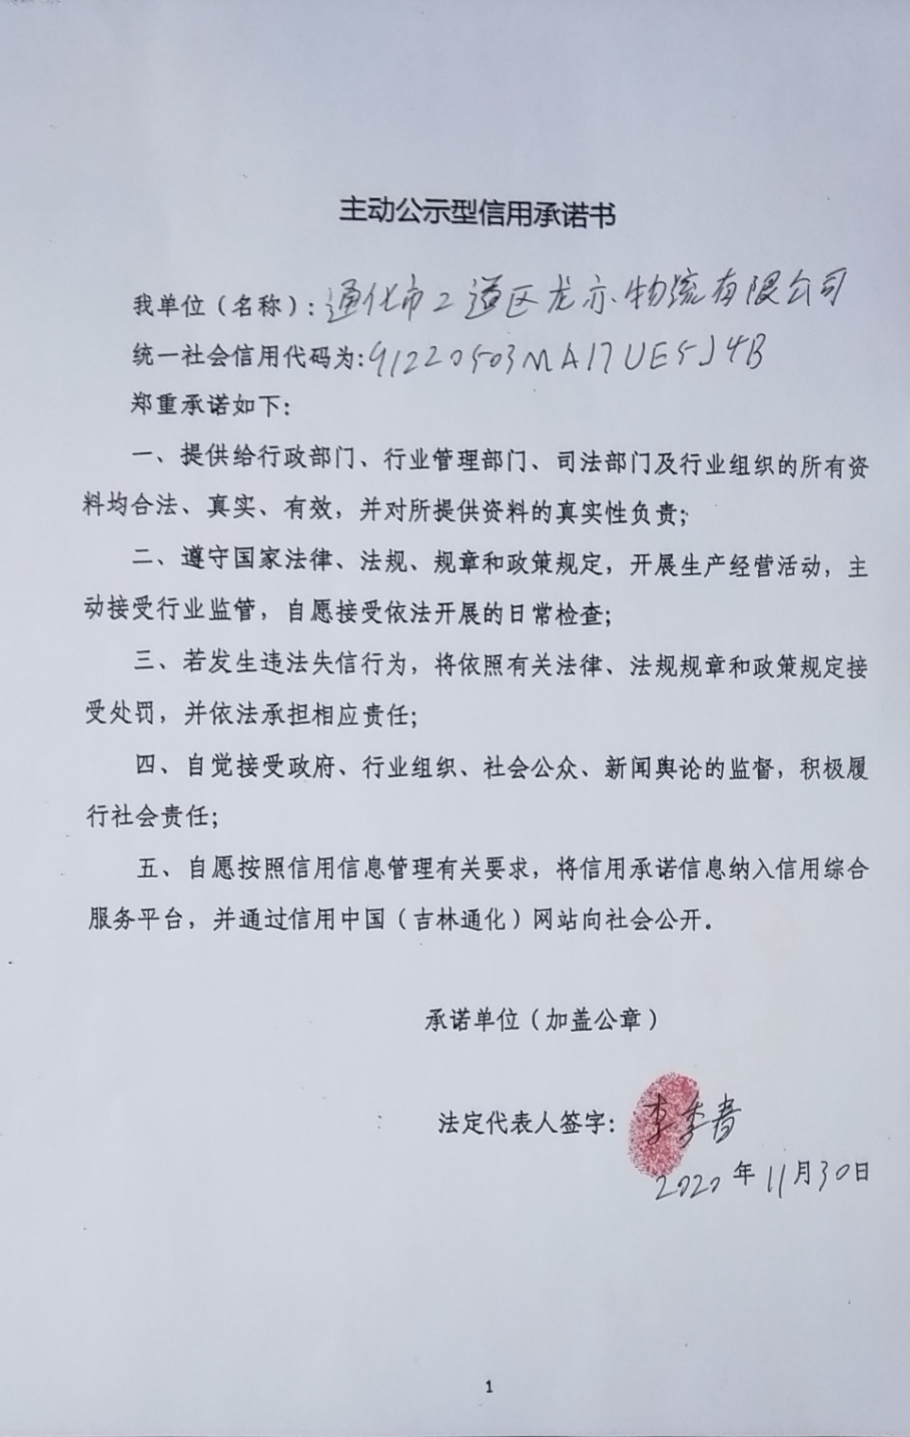 主动公示型信用承诺书
我单位（名称）：通化市二道区龙亦物流有限公司
统一社会信用代码为:91220503MA17UE5J4B
郑重承诺如下：
一、提供给行政部门、行业管理部门、司法部门及行业组织的所有资
料均合法、真实、有效，并对所提供资料的真实性负责；
二、遵守国家法律、法规、规章和政策规定，开展生产经营活动，主
动接受行业监管，自愿接受依法开展的日常检查；
三、若发生违法失信行为，将依照有关法律、法规规章和政策规定接
受处罚，并依法承担相应责任；
四、自觉接受政府、行业组织、社会公众、新闻舆论的监督，积极履
行社会责任；
五、自愿按照信用信息管理有关要求，将信用承诺信息纳入信用综合
服务平台，并通过信用中国（吉林通化）网站向社会公开。
承诺单位（加盖公章）
法定代表人签字：李季春
2020年11月30日
1